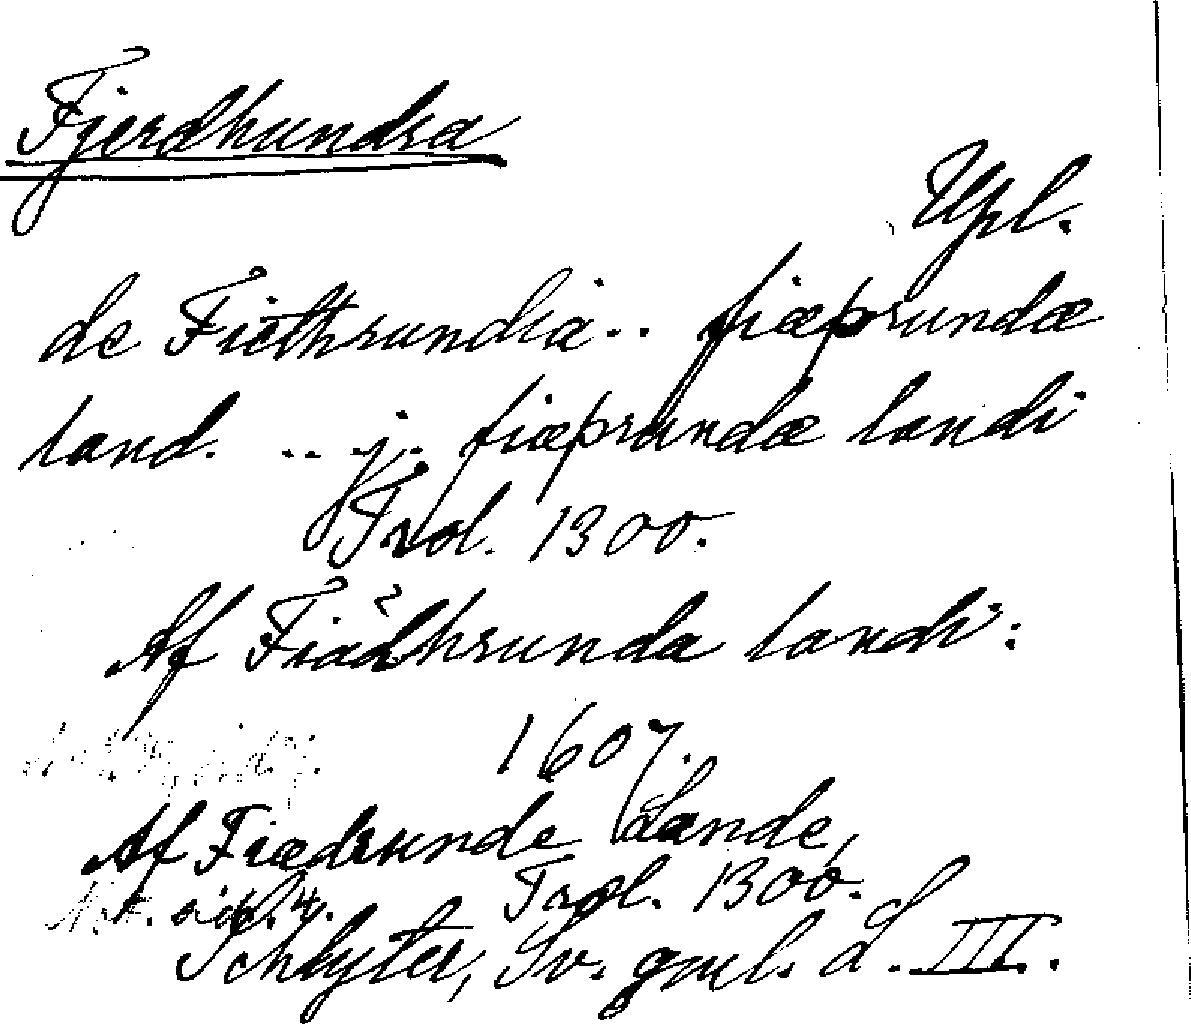 Fjerdhundra
Upl.
de Fiethrundia.. fiæþrundæ
land. .. j. fiæþrundæ landi
Trol. 1300.
Af Fiädhrunda landi:
1607.
Af Fiædrunde Lande,
Trol. 1300.
Schlyter, Sv. gml. L. III.